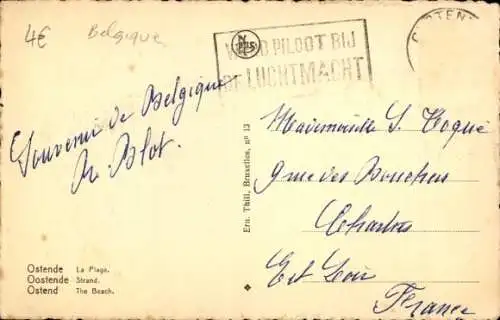 4€
Belgique
WORD PILOOT BIJ
DE LUCHTMACHT
OOSTEN
NELS
Souvenir de Belgique
Blot.
Mademoiselle S.
9 rue des Bouchers
Chartres
Eet Loir
France
Ern. Thill, Bruxelles, nº 13
Ostende La Plage.
Oostende Strand.
Ostend The Beach.